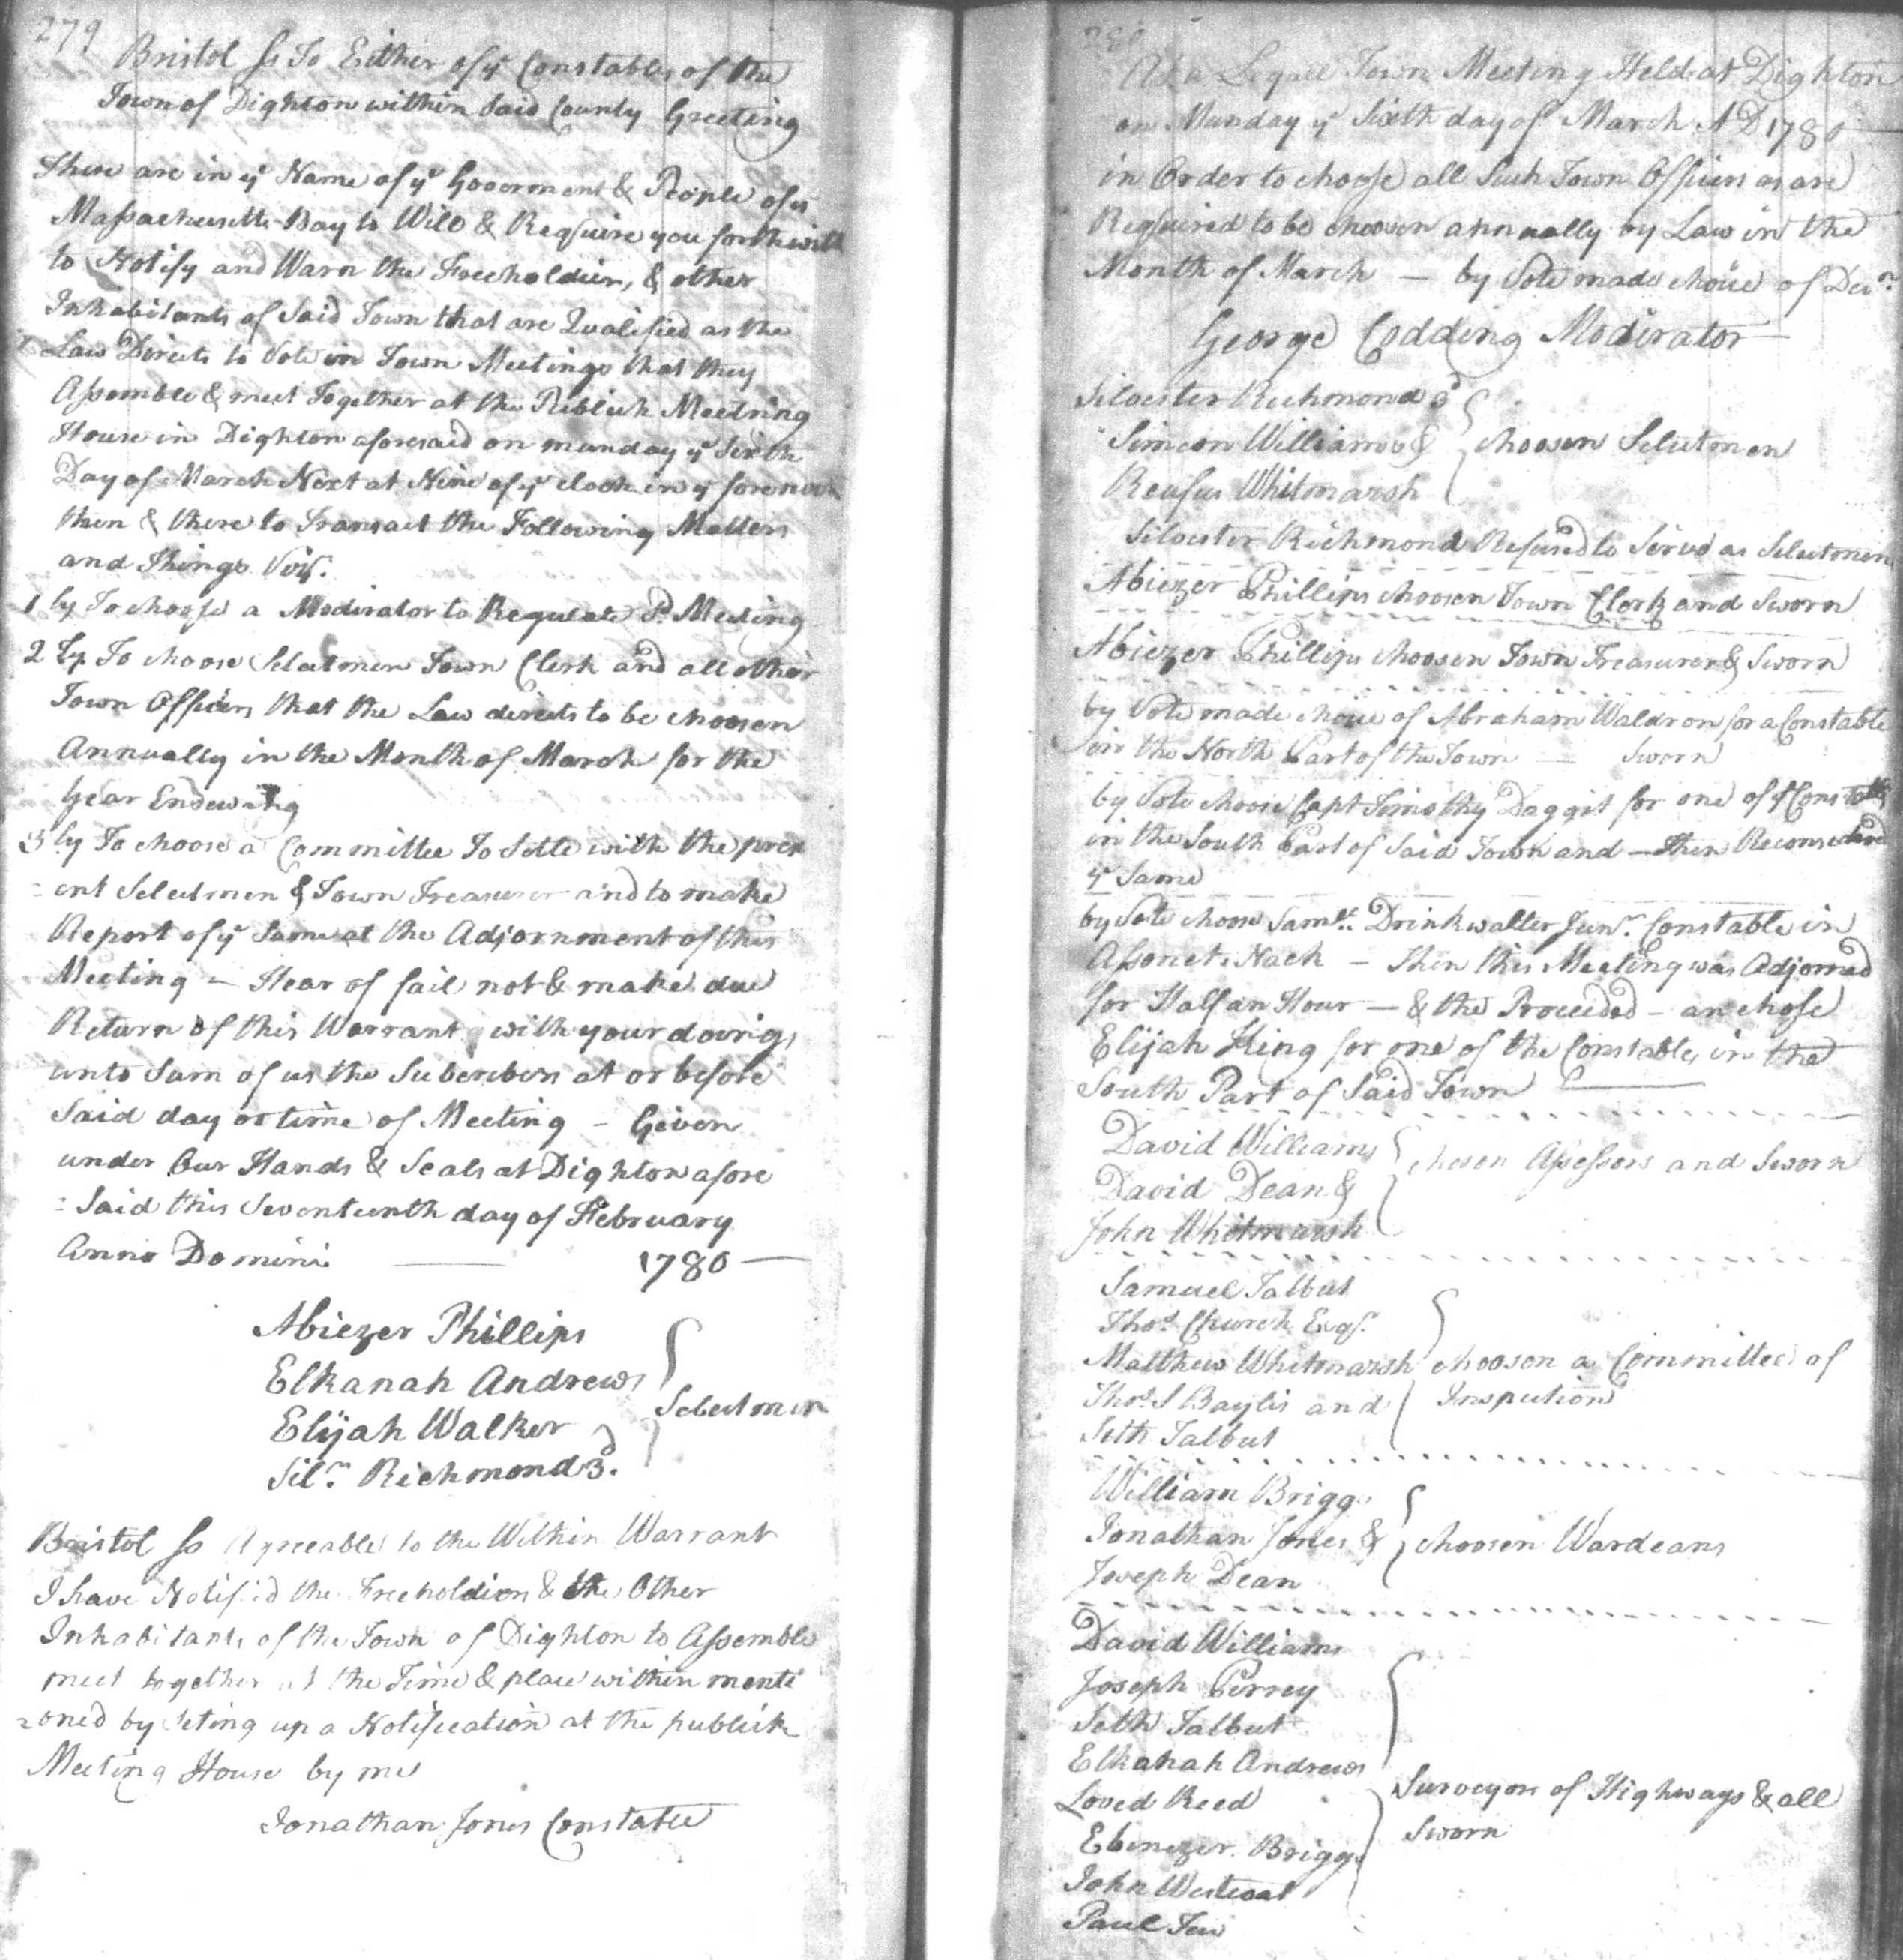 279
Bristol ſs To Either of yͤ Constables of the
Town of Dighton within Said County Greeting
These are in yͤ Name of yͤ Goverment & People of yͤ
Maſsachusetts Bay to Will & Require you forthwith
to Notify and Warn the Freeholders, & other
Inhabitants of Said Town that are Qualified as the
Law Directs to Vote in Town Meetings that they
Aſsemble & meet Together at the Publick Meeting
House in Dighton aforesaid on munday yͤ Sixth
Day of March Next at Nine of yͤ clock in yͤ forenoon
then & there to Transact the Following Matters
and Things Viz.
1 ly To choose a Modirator to Regulate Sd. Meeting
2 ly To choose Selectmen Town Clerk and all other
Town Officers that the Law directs to be choosen
Annually in the Month of March for the
Year Ensewing
3 ly To choose a Committee To Settle with the pres
=ent Selectmen & Town Treasurer and to make
Report of yͤ Same at the Adjornment of this
Meeting – Hear of fail not & make due
Return of this Warrant with your doings
unto Sum of us the Subcribers at or before
Said day or time of Meeting – Given
under Our Hands & Seals at Dighton afore
=Said this Seventeenth day of February
Anno Domini — 1780 —
Abiezer Phillips
Elkanah Andrews
Elijah Walker
Selectmen
Silr. Richmond 3d.
Bristol ſs Agreeable to the Within Warrant
I have Notifid the Freeholders & the Other
Inhabitants of the Town of Dighton to Aſsemble
meet together at the Time & place within menti
=oned by Seting up a Notification at the publick
Meeting House by me
Jonathan Jones Constable
280
At a Legall Town Meeting Held at Dighton
on Munday yͤ Sixth day of March AD 1780
in Order to chooſe all Such Town Officers as are
Required to be choosen annually by Law in the
Month of March — by Vote made choice of Decn.
George Codding Modirator —
Silvester Richmond 3d
Simeon Williams &
Reufus Whitmarsh
choosen Selectmen
Silvester Richmond Refused to Serve as Selectmen
Abiezer Phillips choosen Town Clerk and Sworn
Abiezer Phillips choosen Town Treasurer & Sworn
by Vote made choice of Abraham Waldron for a Constable
in the North Part of the Town — Sworn
by Vote choose Capt Timothy Daggit for one of yͤ Constable
in the South Part of Said Town and — then Reconsidered
yͤ Same
by Vote choose Samll. Drinkwatter Junr. Constable in
Aſsonet Neck – Then this Meeting was Adjorned
for Half an Hour — & the Proceeded – an choſe
Elijah King for one of the Constables in the
South Part of Said Town
David Williams
David Dean &
John Whitmarsh
chosen Aſseſsors and Sworn
Samuel Talbut
Thos. Church Esqr.
Matthew Whitmarsh
Thos. S Baylis and
Seth Talbut
choosen a Committee of
Inspection
William Briggs
Jonathan Jones &
Joseph Dean
choosen Wardeans
David Williams
Joseph Perrey
Seth Talbut
Elkanah Andrews
Loved Reed
Ebenezer Briggs
John Westcoat
Paul Tew
Surveyors of Highways & all
Sworn